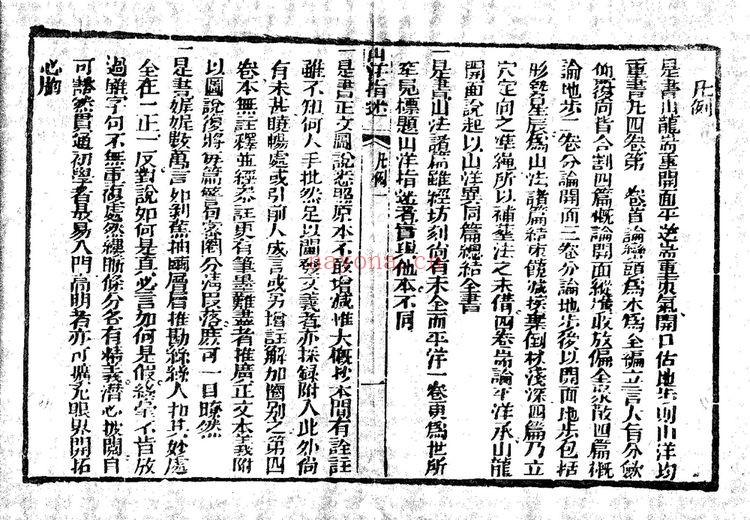 凡例
是書山龍耑重開面平洋耑重束氣開口佔地步則山洋均
重書凡四卷第一卷首論巒頭為本為全編立言大旨分歛
仰覆向背合割四篇概論開面縱橫收放偏全聚散四篇概
論地步二卷分論開面三卷分論地步後以開面地步包括
形勢星辰為山法諸篇結束饒減挨棄倒杖淺深四篇乃立
穴定向之準繩所以補葬法之未備四卷耑論平洋承山龍
開面說起以山洋異同篇總結全書
一是書山法諸篇雖經坊刻尚有未全而平洋一卷更為世所
罕見標題山洋指迷者實與他本不同
山洋指迷
凡例
一
一是書正文圖說悉照原本不敢增減惟大概抄本間有詮註
雖不知何人手批然足以闡發文義者亦採錄附入此外尚
有未甚曉暢處或引前人成言或另增註解加圈別之第四
卷本無註釋並經添註更有筆墨難盡者推廣正文本義附
以圖說後將每篇警句密圈分清段落庶可一目瞭然
一是書娓娓數萬言如剝蕉抽繭層層推勘絲絲入扣其妙處
全在一正一反對說如何是真必言如何是假終不肯放
過雖字句不無重複處然縷晰條分各有精義潛心披閱自
可豁然貫通初學者最易入門高明者亦可擴充眼界開拓
心胸
nayona.cn